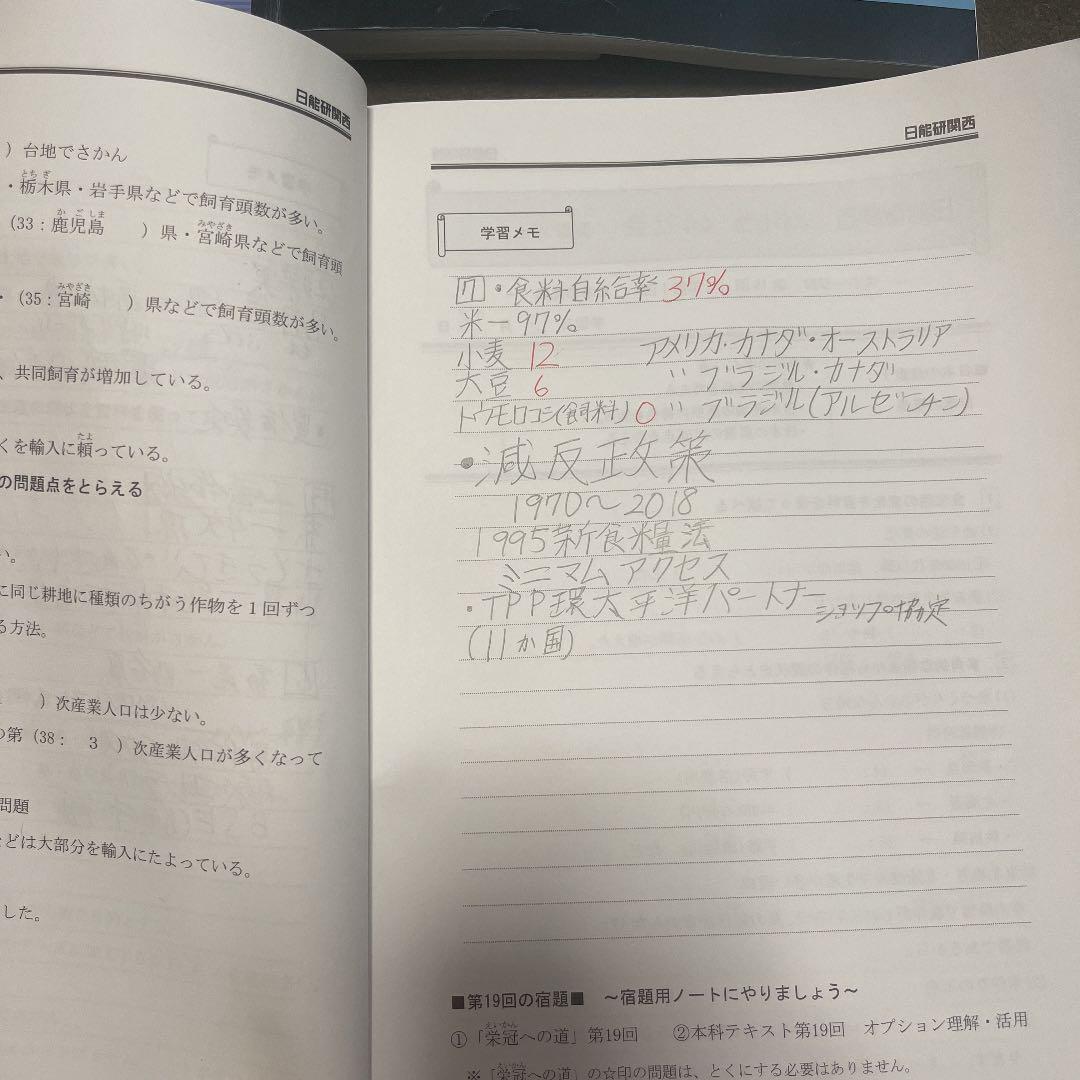 日能研関西
)台地でさかん
・栃木県・岩手県などで飼育頭数が多い。
(33:鹿児島 )県・宮崎県などで飼育頭
・(35:宮崎 )県などで飼育頭数が多い。
、共同飼育が増加している。
くを輸入に頼っている。
の問題点をとらえる
い。
に同じ耕地に種類のちがう作物を1回ずつ
る方法。
)次産業人口は少ない。
の第(38: 3 )次産業人口が多くなって
問題
などは大部分を輸入にたよっている。
した。
日能研関西
学習メモ
7・食料自給率 37%
米ー97%
小麦 12 アメリカ・カナダ・オーストラリア
大豆 6 〃 ブラジル・カナダ
トウモロコシ(飼料) 0 〃 ブラジル(アルゼンチン)
・減反政策
1970〜2018
1995新食糧法
ミニマムアクセス
・TPP環太平洋パートナーショップ協定
(11か国)
■第19回の宿題■ 〜宿題用ノートにやりましょう〜
①「栄冠への道」第19回 ②本科テキスト第19回 オプション理解・活用
※「栄冠への道」の☆印の問題は、とくにする必要はありません。